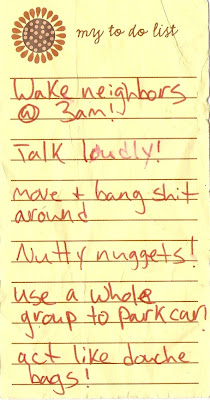 my to do list
Wake neighbors
@ 3am!
Talk loudly!
move + bang shit
around
Nutty nuggets!
use a whole
group to park car!
act like douche
bags!